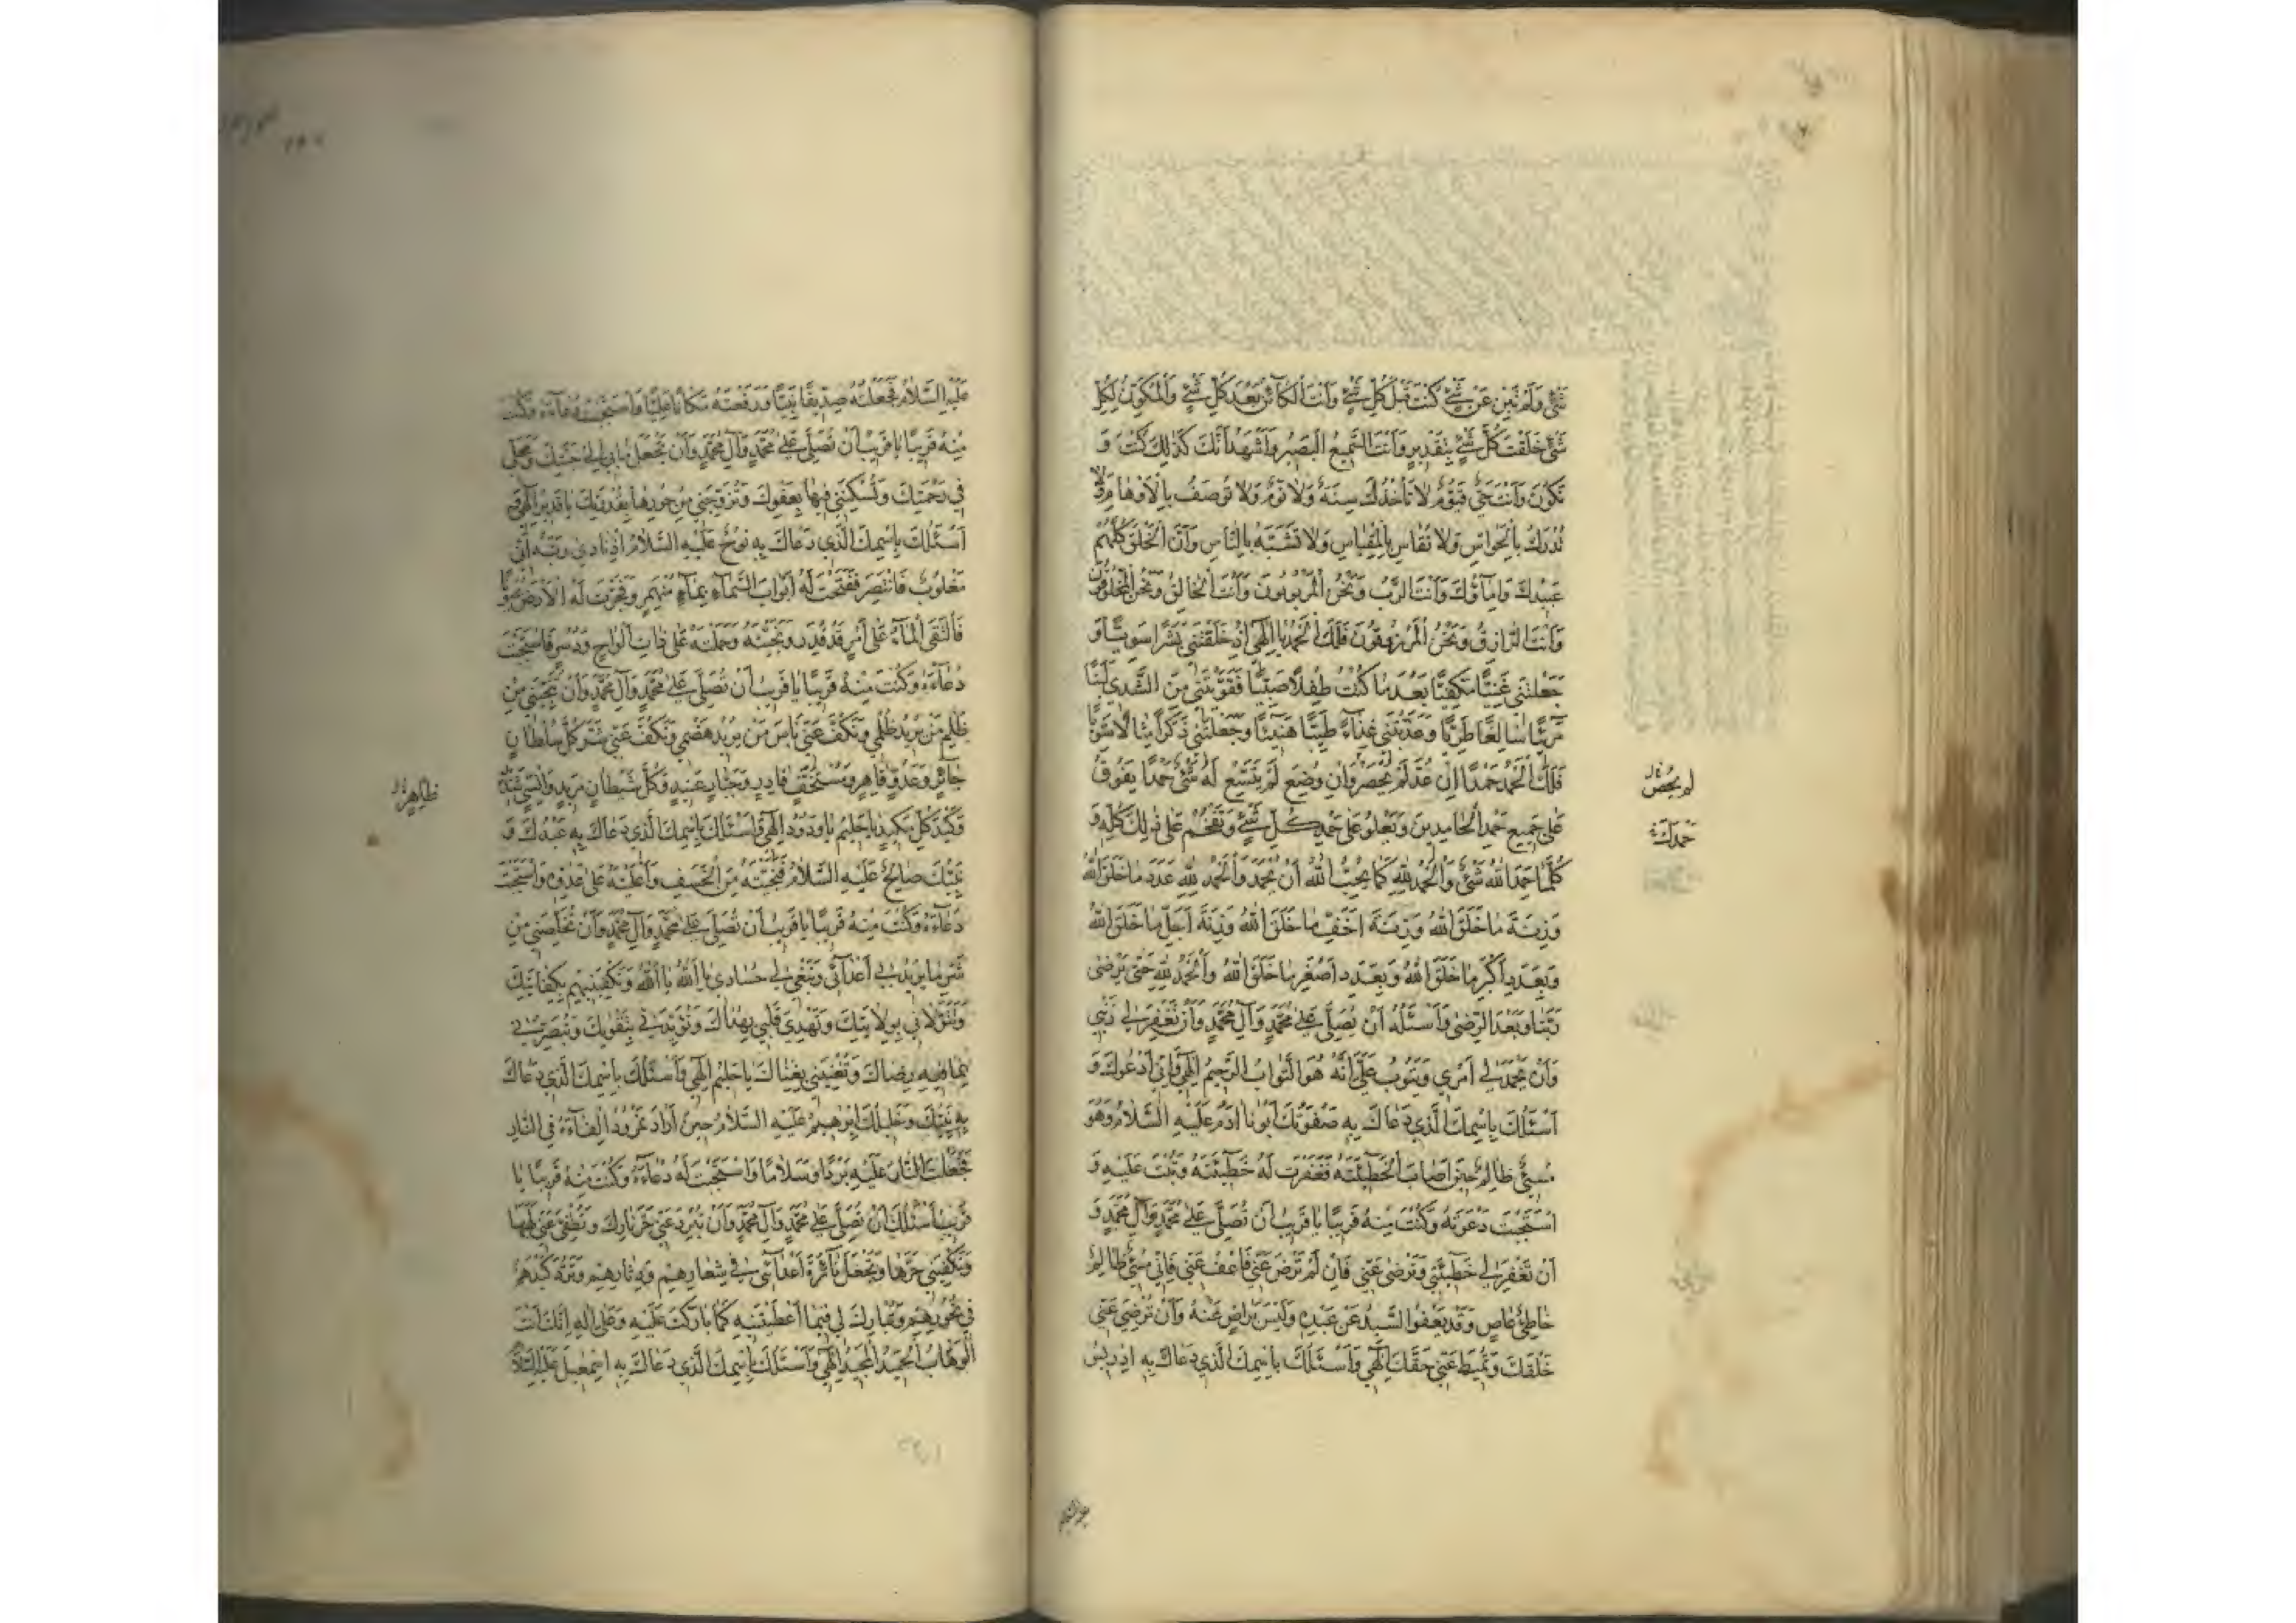 شَيْءٍ وَلَمْ تَبِنْ عَنْ شَيْءٍ كُنْتَ قَبْلَ كُلِّ شَيْءٍ وَاَنْتَ الْكَائِنُ بَعْدَ كُلِّ شَيْءٍ وَالْمُكَوِّنُ لِكُلِّ
شَيْءٍ خَلَقْتَ كُلَّ شَيْءٍ بِتَقْدِيرٍ وَاَنْتَ السَّمِيعُ الْبَصِيرُ وَاَشْهَدُ اَنَّكَ كَذٰلِكَ كُنْتَ وَ
تَكُونُ وَاَنْتَ حَيٌّ قَيُّومٌ لَا تَأْخُذُكَ سِنَةٌ وَلَا نَوْمٌ وَلَا تُوصَفُ بِالْاَوْهَامِ وَلَا
تُدْرَكُ بِالْحَوَاسِّ وَلَا تُقَاسُ بِالْمِقْيَاسِ وَلَا تُشَبَّهُ بِالنَّاسِ وَاَنَّ الْخَلْقَ كُلَّهُمْ
عَبِيدُكَ وَاِمَاؤُكَ وَاَنْتَ الرَّبُّ وَنَحْنُ الْمَرْبُوبُونَ وَاَنْتَ الْخَالِقُ وَنَحْنُ الْمَخْلُوقُونَ
وَاَنْتَ الرَّازِقُ وَنَحْنُ الْمَرْزُوقُونَ فَلَكَ الْحَمْدُ يَا اِلٰهِي اِذْ خَلَقْتَنِي بَشَرًا سَوِيًّا وَ
جَعَلْتَنِي غَنِيًّا مَكْفِيًّا بَعْدَ مَا كُنْتُ طِفْلًا صَبِيًّا فَقَوَّتَّنِي مِنَ الثَّدْيِ لَبَنًا
مَرِيئًا سَائِغًا طَرِيًّا وَغَذَّيْتَنِي غِذَاءً طَيِّبًا هَنِيئًا وَجَعَلْتَنِي ذَكَرًا مِثَالًا سَوِيًّا
فَلَكَ الْحَمْدُ حَمْدًا اِنْ عُدَّ لَمْ يُحْصَرْ وَاِنْ وُضِعَ لَمْ يَتَّسِعْ لَهُ شَيْءٌ حَمْدًا يَفُوقُ
لم يحص
عَلَى جَمِيعِ حَمْدِ الْحَامِدِينَ وَيَعْلُو عَلَى حَمْدِ كُلِّ شَيْءٍ وَيَفْخُمُ عَلَى ذٰلِكَ كُلِّهِ وَ
حمدك
كُلَّمَا حَمِدَ اللهَ شَيْءٌ وَالْحَمْدُ لِلّٰهِ كَمَا يُحِبُّ اللهُ اَنْ يُحْمَدَ وَالْحَمْدُ لِلّٰهِ عَدَدَ مَا خَلَقَ اللهُ
وَزِنَةَ مَا خَلَقَ اللهُ وَزِنَةَ اَخَفِّ مَا خَلَقَ اللهُ وَزِنَةَ اَجَلِّ مَا خَلَقَ اللهُ
وَبِعَدَدِ اَكْبَرِ مَا خَلَقَ اللهُ وَبِعَدَدِ اَصْغَرِ مَا خَلَقَ اللهُ وَالْحَمْدُ لِلّٰهِ حَتَّى يَرْضَى
رَبُّنَا وَبَعْدَ الرِّضَى وَاَسْئَلُهُ اَنْ يُصَلِّيَ عَلَى مُحَمَّدٍ وَآلِ مُحَمَّدٍ وَاَنْ يَغْفِرَ لِي ذَنْبِي
وَاَنْ يَحْمَدَ لِي اَمْرِي وَيَتُوبَ عَلَيَّ اِنَّهُ هُوَ التَّوَّابُ الرَّحِيمُ اِلٰهِي وَاِنِّي اَدْعُوكَ وَ
اَسْئَلُكَ بِاِسْمِكَ الَّذِي دَعَاكَ بِهِ صَفْوَتُكَ اَبُونَا آدَمُ عَلَيْهِ السَّلَامُ وَهُوَ
مُسِيءٌ ظَالِمٌ حِينَ اَصَابَ الْخَطِيئَةَ فَغَفَرْتَ لَهُ خَطِيئَتَهُ وَتُبْتَ عَلَيْهِ وَ
اسْتَجَبْتَ دَعْوَتَهُ وَكُنْتَ مِنْهُ قَرِيبًا يَا قَرِيبُ اَنْ تُصَلِّيَ عَلَى مُحَمَّدٍ وَآلِ مُحَمَّدٍ وَ
اَنْ تَغْفِرَ لِي خَطِيئَتِي وَتَرْضَى عَنِّي فَاِنْ لَمْ تَرْضَ عَنِّي فَاعْفُ عَنِّي فَاِنِّي مُسِيءٌ ظَالِمٌ
خَاطِئٌ عَاصٍ وَقَدْ يَعْفُو السَّيِّدُ عَنْ عَبْدِهِ وَلَيْسَ بِرَاضٍ عَنْهُ وَاَنْ تُرْضِيَ عَنِّي
خَلْقَكَ وَتُمِيطَ عَنِّي حَقَّكَ اِلٰهِي وَاَسْئَلُكَ بِاِسْمِكَ الَّذِي دَعَاكَ بِهِ اِدْرِيسُ
عليه السلام
عَلَيْهِ السَّلَامُ فَجَعَلْتَهُ صِدِّيقًا نَبِيًّا وَرَفَعْتَهُ مَكَانًا عَلِيًّا وَاسْتَجَبْتَ دُعَاءَهُ وَكُنْتَ
مِنْهُ قَرِيبًا يَا قَرِيبُ اَنْ تُصَلِّيَ عَلَى مُحَمَّدٍ وَآلِ مُحَمَّدٍ وَاَنْ تَجْعَلَ مَآبِي اِلَى جَنَّتِكَ وَمَحَلِّي
فِي رَحْمَتِكَ وَتُسْكِنَنِي فِيهَا بِعَفْوِكَ وَتُزَوِّجَنِي مِنْ حُورِهَا بِقُدْرَتِكَ يَا قَدِيرُ اِلٰهِي وَ
اَسْئَلُكَ بِاِسْمِكَ الَّذِي دَعَاكَ بِهِ نُوحٌ عَلَيْهِ السَّلَامُ اِذْ نَادَى رَبَّهُ اَنِّي
مَغْلُوبٌ فَانْتَصِرْ فَفَتَحْتَ لَهُ اَبْوَابَ السَّمَاءِ بِمَاءٍ مُنْهَمِرٍ وَفَجَّرْتَ لَهُ الْاَرْضَ عُيُونًا
فَالْتَقَى الْمَاءُ عَلَى اَمْرٍ قَدْ قُدِرَ وَنَجَّيْتَهُ وَحَمَلْتَهُ عَلَى ذَاتِ اَلْوَاحٍ وَدُسُرٍ فَاسْتَجَبْتَ
دُعَاءَهُ وَكُنْتَ مِنْهُ قَرِيبًا يَا قَرِيبُ اَنْ تُصَلِّيَ عَلَى مُحَمَّدٍ وَآلِ مُحَمَّدٍ وَاَنْ تُنْجِيَنِي مِنْ
ظُلْمِ مَنْ يُرِيدُ ظُلْمِي وَتَكُفَّ عَنِّي بَأْسَ مَنْ يُرِيدُ هَضْمِي وَتَكُفَّ عَنِّي شَرَّ كُلِّ سُلْطَانٍ
جَائِرٍ وَعَدُوٍّ قَاهِرٍ وَمُسْتَخِفٍّ قَادِرٍ وَجَبَّارٍ عَنِيدٍ وَكُلِّ شَيْطَانٍ مَرِيدٍ وَاِنْسِيٍّ شَدِيدٍ
ظاهر
وَكَيْدَ كُلِّ مَكِيدٍ يَا حَلِيمُ يَا وَدُودُ اِلٰهِي وَاَسْئَلُكَ بِاِسْمِكَ الَّذِي دَعَاكَ بِهِ عَبْدُكَ وَ
نَبِيُّكَ صَالِحٌ عَلَيْهِ السَّلَامُ فَنَجَّيْتَهُ مِنَ الْخَسْفِ وَاَعْلَيْتَهُ عَلَى عَدُوِّهِ وَاسْتَجَبْتَ
دُعَاءَهُ وَكُنْتَ مِنْهُ قَرِيبًا يَا قَرِيبُ اَنْ تُصَلِّيَ عَلَى مُحَمَّدٍ وَآلِ مُحَمَّدٍ وَاَنْ تُخَلِّصَنِي مِنْ
شَرِّ مَا يُرِيدُ بِي اَعْدَائِي وَتَبْغِي لِي حُسَّادِي يَا اَللهُ يَا اَللهُ وَتَكْفِيَنِيهِمْ بِكِفَايَتِكَ
وَتَتَوَلَّانِي بِوِلَايَتِكَ وَتَهْدِيَ قَلْبِي بِهُدَاكَ وَتُؤَيِّدَنِي بِتَقْوٰيكَ وَتُبَصِّرَنِي
بِمَا فِيهِ رِضَاكَ وَتُغْنِيَنِي بِغِنَاكَ يَا حَلِيمُ اِلٰهِي وَاَسْئَلُكَ بِاِسْمِكَ الَّذِي دَعَاكَ
بِهِ نَبِيُّكَ وَخَلِيلُكَ اِبْرٰهِيمُ عَلَيْهِ السَّلَامُ حِينَ اَرَادَ نَمْرُودُ اِلْقَاءَهُ فِي النَّارِ
فَجَعَلْتَ النَّارَ عَلَيْهِ بَرْدًا وَسَلَامًا وَاسْتَجَبْتَ لَهُ دُعَاءَهُ وَكُنْتَ مِنْهُ قَرِيبًا يَا
قَرِيبُ اَسْئَلُكَ اَنْ تُصَلِّيَ عَلَى مُحَمَّدٍ وَآلِ مُحَمَّدٍ وَاَنْ تُبَرِّدَ عَنِّي حَرَّ نَارِكَ وَتُطْفِئَ عَنِّي لَهَبَهَا
وَتَكْفِيَنِي حَرَّهَا وَتَجْعَلَ نَائِرَةَ اَعْدَائِي فِي شِعَارِهِمْ وَدِثَارِهِمْ وَتَرُدَّ كَيْدَهُمْ
فِي نُحُورِهِمْ وَتُبَارِكَ لِي فِيمَا اَعْطَيْتَنِيهِ كَمَا بَارَكْتَ عَلَيْهِ وَعَلَى آلِهِ اِنَّكَ اَنْتَ
الْوَهَّابُ الْحَمِيدُ الْمَجِيدُ اِلٰهِي وَاَسْئَلُكَ بِاِسْمِكَ الَّذِي دَعَاكَ بِهِ اِسْمٰعِيلُ عَلَيْهِ السَّلَامُ